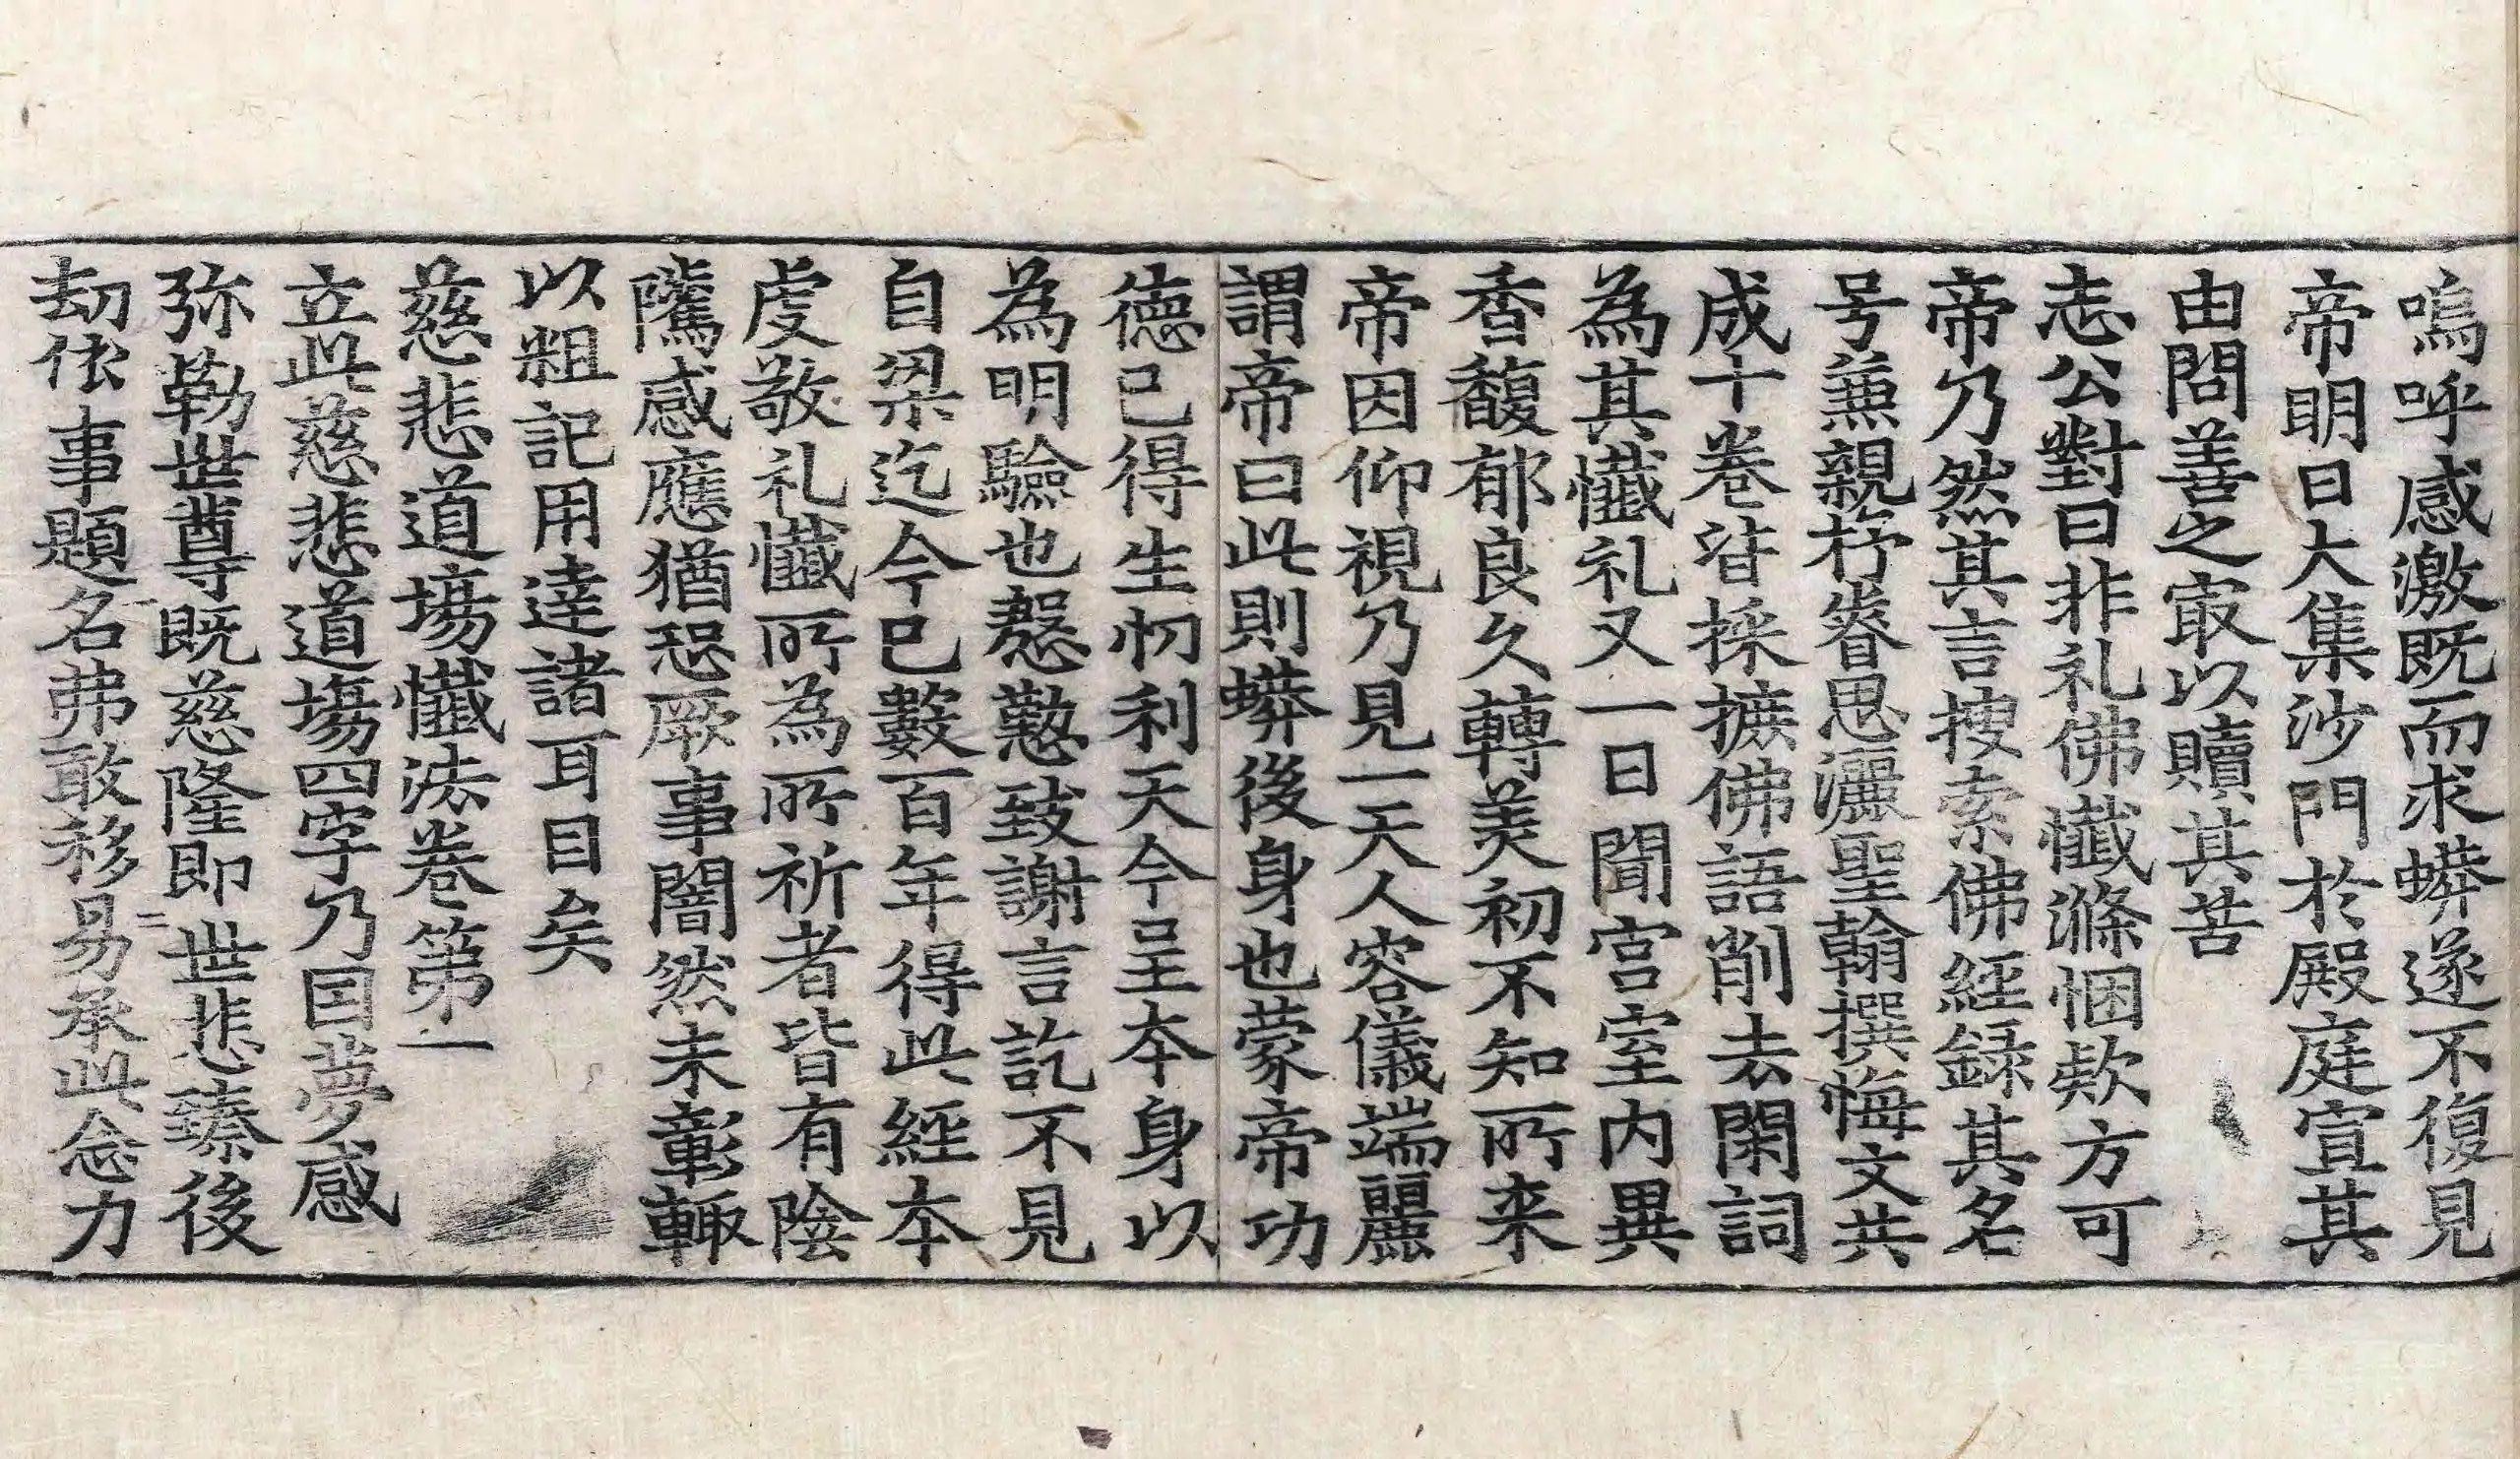 嗚呼感激既而求蟒遂不復見
帝明日大集沙門於殿庭宣其
由問善之㝡以贖其苦
志公對曰非礼佛懺滌悃欵方可
帝乃然其言搜索佛經録其名
号兼親杼睿思灑聖翰撰悔文共
成十卷皆採摭佛語削去閑詞
為其懺礼又一日聞宫室内異
香馥郁良久轉美初不知所来
帝因仰視乃見一天人容儀端麗
謂帝曰此則蟒後身也蒙帝功
德已得生忉利天今呈本身以
為明驗也慇懃致謝言訖不見
自梁迄今已數百年得此經本
虔敬礼懺所為所祈者皆有陰
隲感應猶恐厥事闇然未彰輙
以粗記用達諸耳目矣
慈悲道場懺法卷第一
立此慈悲道場四字乃因夢感
弥勒世尊既慈隆即世悲臻後
劫依事題名弗敢移易承此念力
二